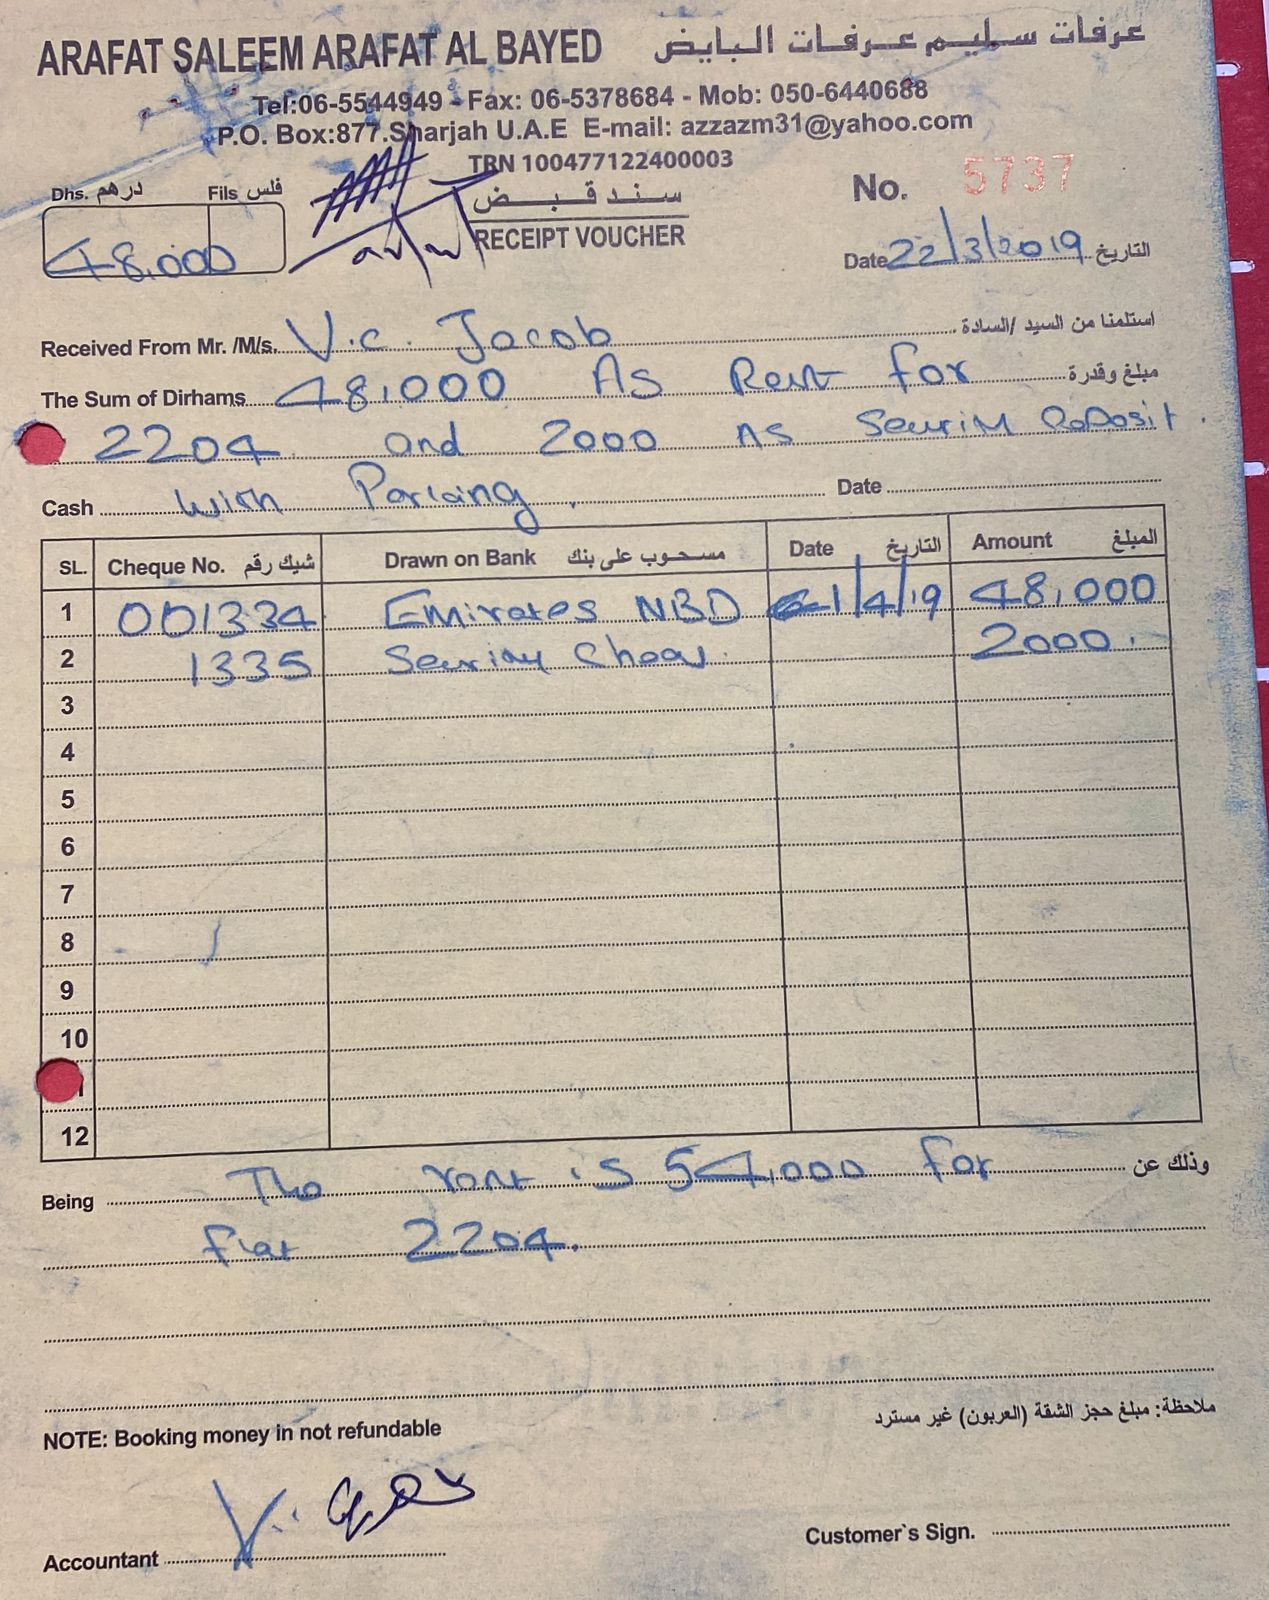 ARAFAT SALEEM ARAFAT AL BAYED عرفات سليم عرفات البايض
Tel:06-5544949 - Fax: 06-5378684 - Mob: 050-6440688
P.O. Box:877.Sharjah U.A.E E-mail: azzazm31@yahoo.com
TRN 100477122400003
Dhs. درهم Fils فلس
سند قبض
RECEIPT VOUCHER
No. 5737
48,000
Date 22/3/2019 التاريخ
Received From Mr. /M/s. V.c. Jacob استلمنا من السيد /السادة
The Sum of Dirhams 48,000 As Rent for مبلغ وقدرة
2204 and 2000 AS Deposit.
Cash with Parking. Date
SL. Cheque No. شيك رقم Drawn on Bank مسحوب على بنك Date التاريخ Amount المبلغ
1 001334 Emirates NBD 1/4/19 48,000
2 1335 2000.
3
4
5
6
7
8
9
10
12
Being The rent is 54,000 for وذلك عن
flat 2204.
NOTE: Booking money in not refundable ملاحظة: مبلغ حجز الشقة (العربون) غير مسترد
Accountant Customer`s Sign.